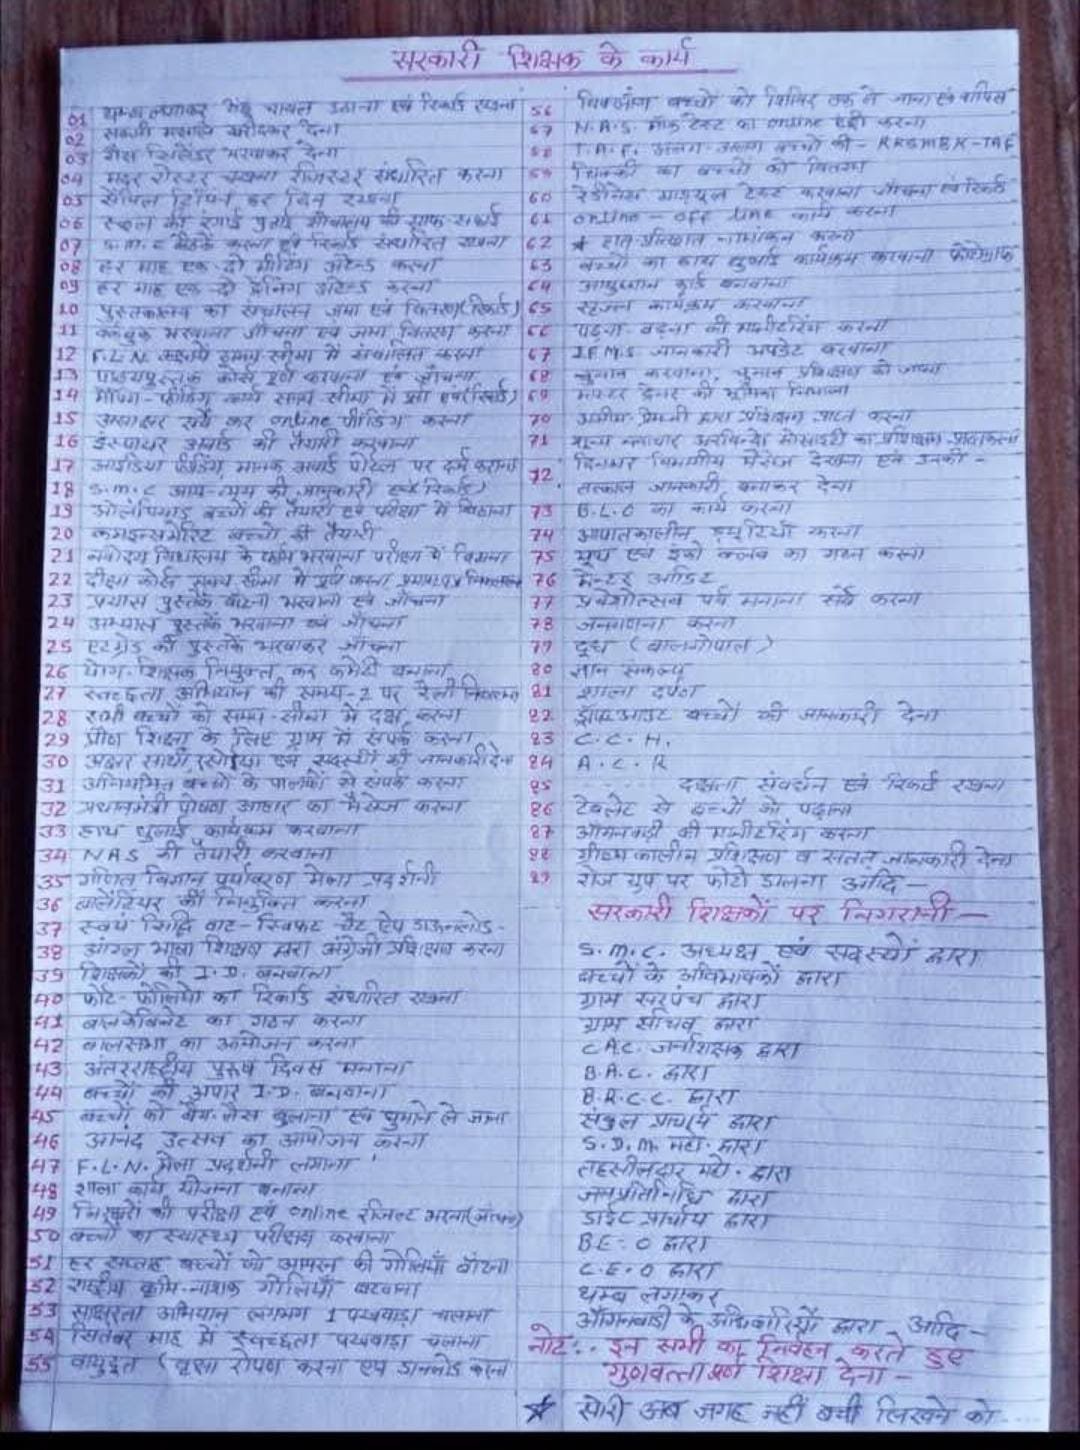 सरकारी शिक्षक के कार्य
01 थम्ब लगाकर गेहूं चावल उठाना एवं रिकार्ड रखना
02 सब्जी मसाले खरीदकर देना
03 गैस सिलेंडर भरवाकर देना
04 मदर रोस्टर रखना रजिस्टर संधारित करना
05 सेंपल टिफिन हर दिन रखना
06 स्कूल की रंगाई पुताई शौचालय की साफ सफाई
07 S.M.C बैठकें करना एवं रिकार्ड संधारित रखना
08 हर माह एक-दो मीटिंग अटेन्ड करना
09 हर माह एक दो ट्रेनिंग अटेंड करना
10 पुस्तकालय का संचालन जमा एवं वितरण (रिकार्ड)
11 वर्कबुक भरवाना जाँचना एवं जमा वितरण करना
12 F.L.N. समय सीमा में संचालित करना
13 पाठ्यपुस्तक कोर्स पूर्ण करवाना एवं जाँचना
14 मैपिंग-फीडिंग कार्य समय सीमा में (रिकार्ड)
15 सर्वे कर online फीडिंग करना
16 इंस्पायर अवार्ड की तैयारी करवाना
17 आईडिया फीडिंग, मानक अवार्ड पोर्टल पर दर्ज कराना
18 S.M.C आय-व्यय की जानकारी एवं रिकार्ड)
19 ओलंपियाड बच्चों की तैयारी एवं परीक्षा में बिठाना
20 बच्चों की तैयारी
21 नवोदय विद्यालय के फॉर्म भरवाना परीक्षा में बिठाना
22 दीक्षा कोर्स समय सीमा में पूर्ण करना, प्रमाणपत्र निकालना
23 प्रयास पुस्तकें बांटना भरवाना एवं जाँचना
24 अभ्यास पुस्तकें भरवाना एवं जाँचना
25 एटग्रेड की पुस्तकें भरवाकर जाँचना
26 योग-शिक्षक नियुक्त कर कमेटी बनाना
27 स्वच्छता अभियान की समय-2 पर रैली निकालना
28 सभी बच्चों को समय-सीमा में दक्ष करना
29 प्रौढ़ शिक्षा के लिए ग्राम में संपर्क करना
30 अक्षर साथी रसोईया एवं सदस्यों की जानकारी देना
31 अनियमित बच्चों के पालकों से संपर्क करना
32 प्रधानमंत्री पोषण आहार का मैसेज करना
33 हाथ धुलाई कार्यक्रम करवाना
34 NAS की तैयारी करवाना
35 गणित विज्ञान पर्यावरण मेला प्रदर्शनी
36 वालेंटियर की नियुक्ति करना
37 स्वयं सिद्धि वाट-स्विफट चैट ऐप डाऊनलोड-
38 आंग्ल भाषा शिक्षण द्वारा अंग्रेजी प्रशिक्षण करना
39 शिक्षकों की I.D. बनवाना
40 पोर्ट-फोलियो का रिकार्ड संधारित रखना
41 बालकेबिनेट का गठन करना
42 बालसभा का आयोजन करना
43 अंतरराष्ट्रीय पुरुष दिवस मनाना
44 बच्चों की अपार I.D. बनवाना
45 बच्चों को बैग-लेस बुलाना एवं घुमाने ले जाना
46 आनंद उत्सव का आयोजन करना
47 F.L.N. मेला प्रदर्शनी लगाना
48 शाला कार्य योजना बनाना
49 निरक्षरों की परीक्षा एवं online रिजल्ट भरना
50 बच्चों का स्वास्थ्य परीक्षण करवाना
51 हर सप्ताह बच्चों को आयरन की गोलियाँ बाँटना
52 राष्ट्रीय कृमि-नाशक गोलियाँ बटवाना
53 साक्षरता अभियान लगभग 1 पखवाड़ा चलाना
54 सितंबर माह में स्वच्छता पखवाड़ा चलाना
55 वायुदूत (वृक्षा रोपण करना एवं डानलोड करना
56 दिव्यांग बच्चों को शिविर तक ले जाना एवं वापिस
57 N.A.S. मॉक टेस्ट का online एंट्री करना
58 T.A.F. अलग-अलग बच्चों की - RKSMBK-TAF
59 का बच्चों को वितरण
60 रेडीनेस माड्यूल टेस्ट करवाना जाँचना एवं रिकार्ड
61 online - off line कार्य करना
62 * शत प्रतिशत नामांकन करना
63 बच्चों का हाथ धुलाई कार्यक्रम करवाना फोटोग्राफ
64 आयुष्मान कार्ड बनवाना
65 सृजन कार्यक्रम करवाना
66 पढ़ना बढ़ना की मानीटरिंग करना
67 I.F.M.S जानकारी अपडेट करवाना
68 चुनाव करवाना, चुनाव प्रशिक्षण को जाना
69 मास्टर ट्रेनर की भूमिका निभाना
70 अजीम प्रेमजी द्वारा प्रशिक्षण प्राप्त करना
71 शून्य नवाचार अरविन्दो सोसाइटी का प्रशिक्षण प्राप्त करना
72. दिनभर विभागीय मैसेज देखना एवं उनकी -
तत्काल जानकारी बनाकर देना
73 B.L.O का कार्य करना
74 आपातकालीन ड्यूटियाँ करना
75 यूथ एवं इको क्लब का गठन करना
76 सेन्टर आडिट
77 प्रवेशोत्सव पर्व मनाना सर्वे करना
78 जनगणना करना
79 दूध (बालगोपाल)
80 ज्ञान संकल्प
81 शाला दर्पण
82 ड्रॉपआउट बच्चों की जानकारी देना
83 C.C.H.
84 A.C.R
85 दक्षता संवर्धन एवं रिकार्ड रखना
86 टेबलेट से बच्चों को पढ़ाना
87 आँगनवाड़ी की मानीटरिंग करना
88 ग्रीष्मकालीन प्रशिक्षण व सतत् जानकारी देना
89 रोज ग्रुप पर फोटो डालना आदि -
सरकारी शिक्षकों पर निगरानी -
S.M.C. अध्यक्ष एवं सदस्यों द्वारा
बच्चों के अभिभावकों द्वारा
ग्राम सरपंच द्वारा
ग्राम सचिव द्वारा
C.A.C. जनशिक्षक द्वारा
B.A.C. द्वारा
B.R.C.C. द्वारा
संकुल प्राचार्य द्वारा
S.D.M. महो. द्वारा
तहसीलदार महो. द्वारा
जनप्रतिनिधि द्वारा
डाईट प्राचार्य द्वारा
B.E.O द्वारा
C.E.O द्वारा
थम्ब लगाकर
आँगनवाडी के अधिकारियों द्वारा आदि -
नोट:. इन सभी का निर्वहन करते हुए
गुणवत्ता पूर्ण शिक्षा देना -
★ सॉरी अब जगह नहीं बची लिखने को....